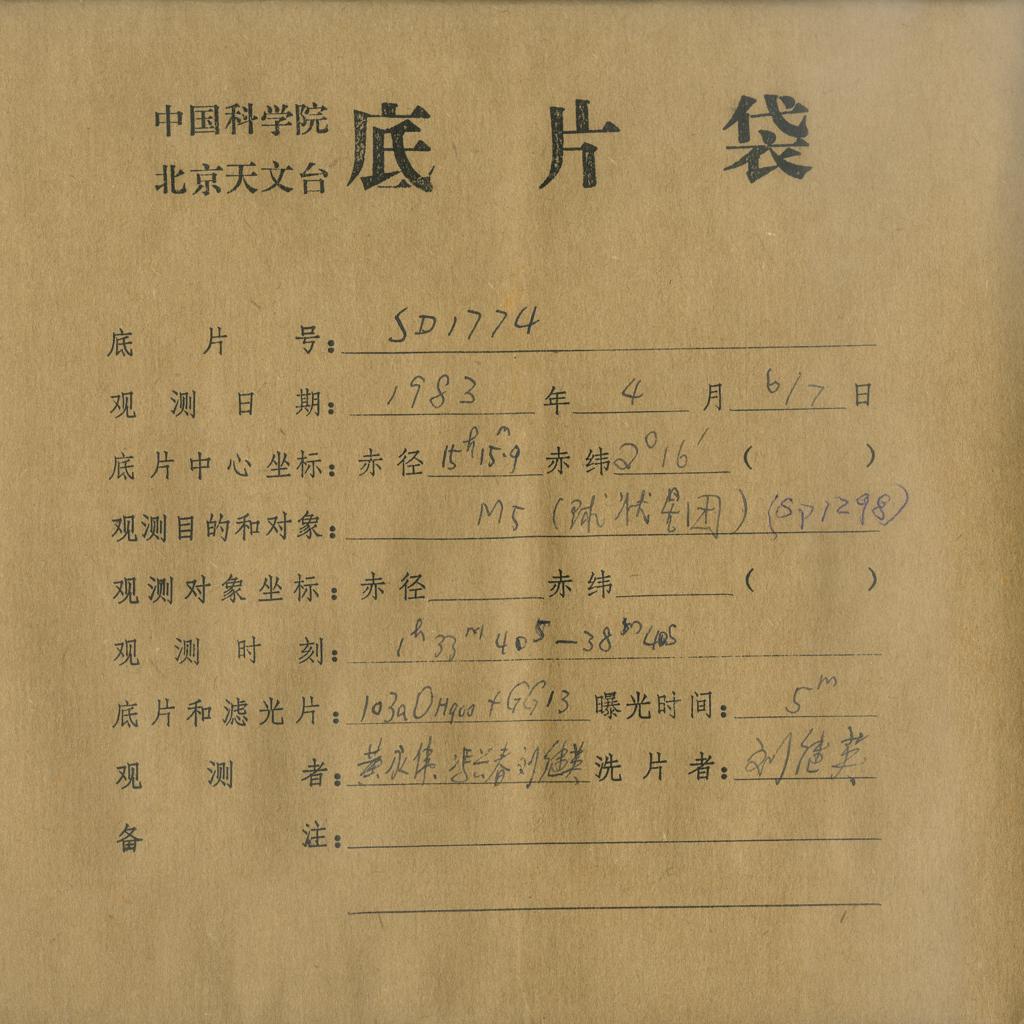 中国科学院
北京天文台
底片袋
底片号：SD1774
观测日期：1983年4月6/7日
底片中心坐标：赤径15h15m.9赤纬2°16′（ ）
观测目的和对象：M5（球状星团）(SP1298)
观测对象坐标：赤径 赤纬 （ ）
观测时刻：1h33m40s—38m40s
底片和滤光片：103aO+GG13 曝光时间：5m
观测者：黄永伟 兴春 刘继英 洗片者：刘继英
备注：